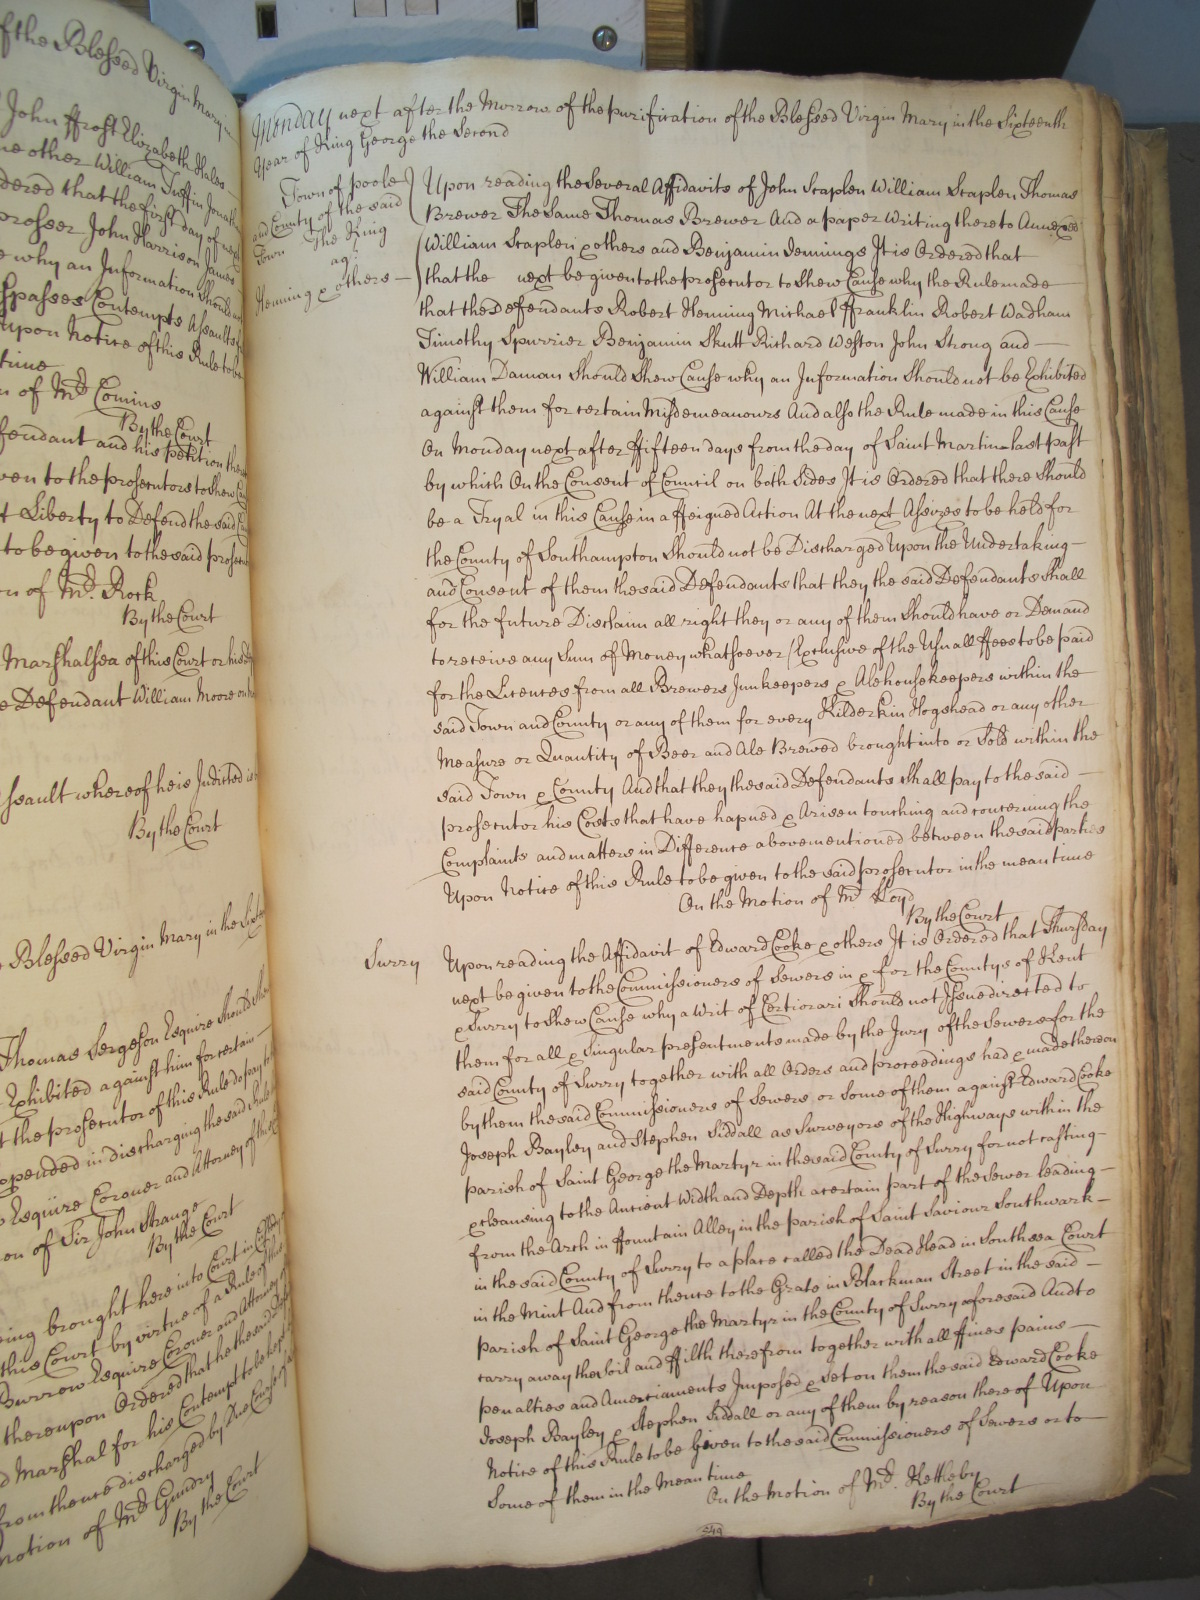 of the Blessed Virgin Mary in
John ffrost Elizabeth Hales
other William Tuffin Jonathan
dered that the first day of next
prosser John Harrison James
why an Information Should not
spasses Contempts Assaults
upon Notice of this Rule to be
time
n of Mr. Comins
By the Court
fendant and his petition
ven to the prosecutors to shew
t Liberty to Defend the said
to be given to the said prosecutor
n of Mr. Rock
By the Court
Marshalsea of this Court or his
e Defendant William Moore on
ssault whereof he is Indicted
By the Court
Blessed Virgin Mary in the Sixteenth
Thomas Sergeson Esquire Should
Exhibited against him for certain
t the prosecutor of this Rule do pay to
xpended in discharging the said Rule
Esquire Coroner and Attorney of the
on of Sir John Strange
By the Court
eing brought here into Court in Custody
this Court by virtue of a Rule of this
Burrow Esquire Coroner and Attorney of
thereupon Ordered that he the said
d Marshal for his Contempt to be kept
from thence discharged by Due Course of
motion of Mr. Gundry
By the Court
Monday next after the Morrow of the purification of the Blessed Virgin Mary in the Sixteenth
Year of King George the Second
Town of poole
and County of the said
Town The King
agt.
Henning & others —
Upon reading the Several Affidavits of John Staplen William Staplen Thomas
Brewer The Same Thomas Brewer And a paper Writing thereto Annexed
William Staplen & others and Benjamin Jennings It is Ordered that
that the next be given to the prosecutor to Shew Cause why the Rule made
that the Defendants Robert Henning Michael ffranklin Robert Wadham
Timothy Spurrier Benjamin Skutt Richard Weston John Strong and —
William Daman Should Shew Cause why an Information Should not be Exhibited
against them for certain Misdemeanours And also the Rule made in this Cause
On Monday next after ffifteen days from the day of Saint Martin last past
by which On the Consent of Council on both Sides It is Ordered that there Should
be a Tryal in this Cause in a ffeigned Action At the next Assizes to be held for
the County of Southampton Should not be Discharged Upon the Undertaking —
and Consent of them the said Defendants that they the said Defendants Shall
for the future Disclaim all right they or any of them Should have or Demand
to receive any Sum of Money whatsoever (Exclusive of the Usuall ffees to be paid
for the Licences from all Brewers Innkeepers & Alehousekeepers within the
said Town and County or any of them for every Kilderkin Hogshead or any other
Measure or Quantity of Beer and Ale Brewed brought into or Sold within the
said Town & County And that they the said Defendants Shall pay to the said —
prosecutor his Costs that have hapned & Arisen touching and concerning the
Complaints and matters in Difference abovementioned between the said parties
Upon Notice of this Rule to be given to the said prosecutor in the mean time
On the Motion of Mr. Lloyd
By the Court
Surry
Upon reading the Affidavit of Edward Cooke & others It is Ordered that Thursday
next be given to the Commissioners of Sewers in & for the Countys of Kent
& Surry to Shew Cause why a Writ of Certiorari Should not Issue directed to
them for all & Singular presentments made by the Jury of the Sewers for the
said County of Surry together with all Orders and proceedings had & made thereon
by them the said Commissioners of Sewers or Some of them against Edward Cooke
Joseph Bayley and Stephen Siddall as Surveyors of the Highways within the
parish of Saint George the Martyr in the said County of Surry for not casting —
& cleansing to the Ancient Width and Depth a certain part of the Sewer leading —
from the Arch in ffountain Alley in the parish of Saint Saviour Southwark —
in the said County of Surry to a place called the Dead Head in Southsea Court
in the Mint And from thence to the Grate in Blackman Street in the said —
parish of Saint George the Martyr in the County of Surry aforesaid And to
carry away the Soil and ffilth therefrom together with all ffines pains —
penalties and Amerciaments Imposed & set on them the said Edward Cooke
Joseph Bayley & Stephen Siddall or any of them by reason there of Upon
Notice of this Rule to be Given to the said Commissioners of Sewers or to —
Some of them in the Mean time
On the Motion of Mr. Kettleby
By the Court